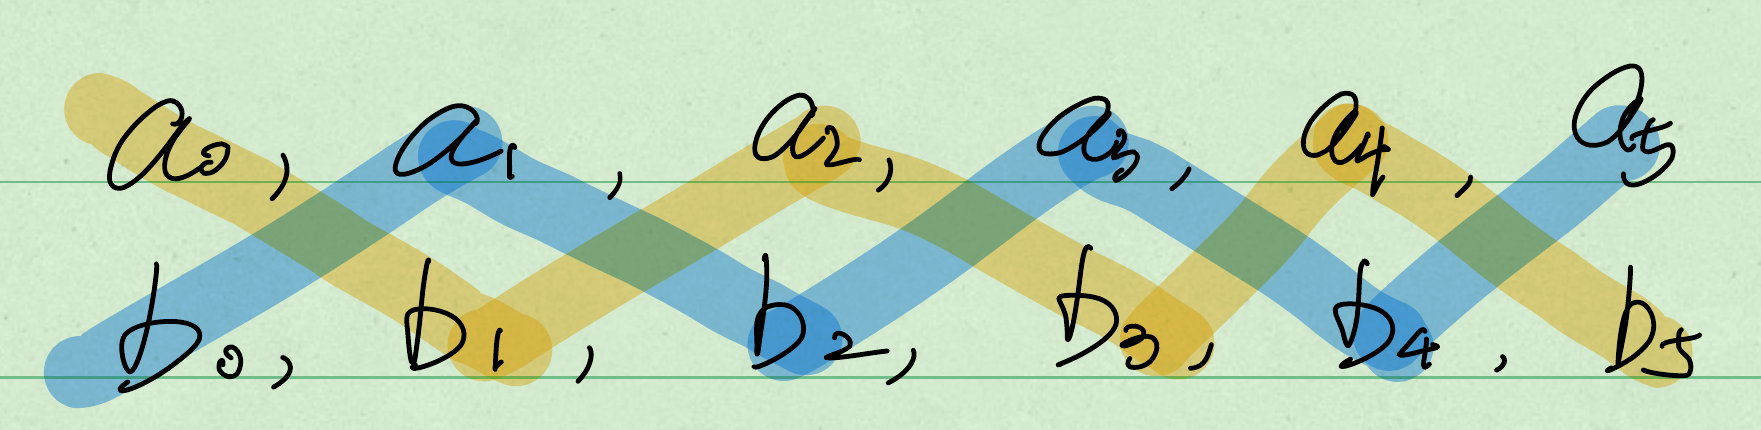 a₀, a₁, a₂, a₃, a₄, a₅
b₀, b₁, b₂, b₃, b₄, b₅